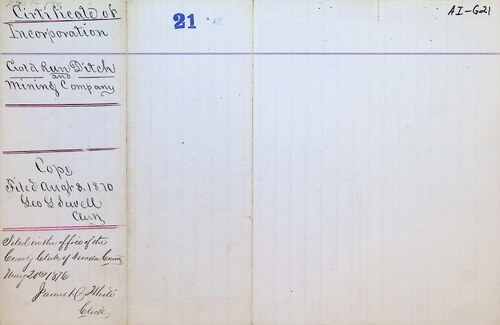 Certificate of
Incorporation
Gold Run Ditch
and
Mining Company
Copy
Filed Augt 8. 1870
Geo S Sewell
Clerk
Filed in the office of the
County Clerk of Nevada County
May 22nd 1876
James D White
Clerk
21
AI-G21